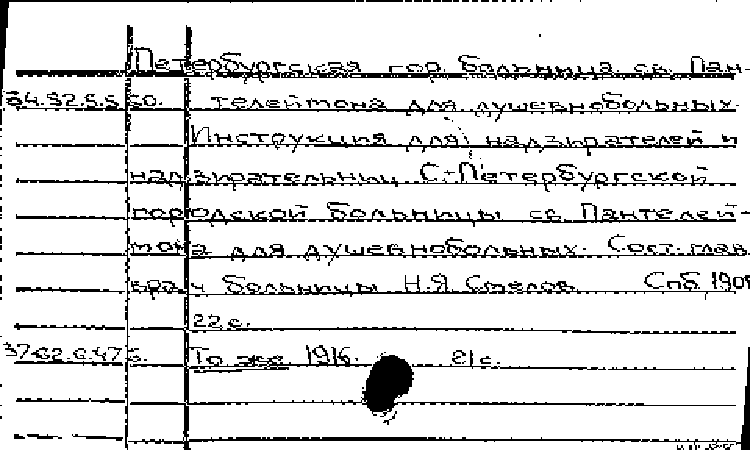 Петербургская гор. больница св. Пан-
34.92.5.560. телеймона для душевнобольных.
Инструкция для надзирателей и
надзирательниц С.-Петербургской
городской больницы св. Пантелей-
мона для душевнобольных. Сост. глав.
врач больницы Н.Я. Смелов Спб. 1908
22 с.
37-62.6.475. То же 1916. 21 с.